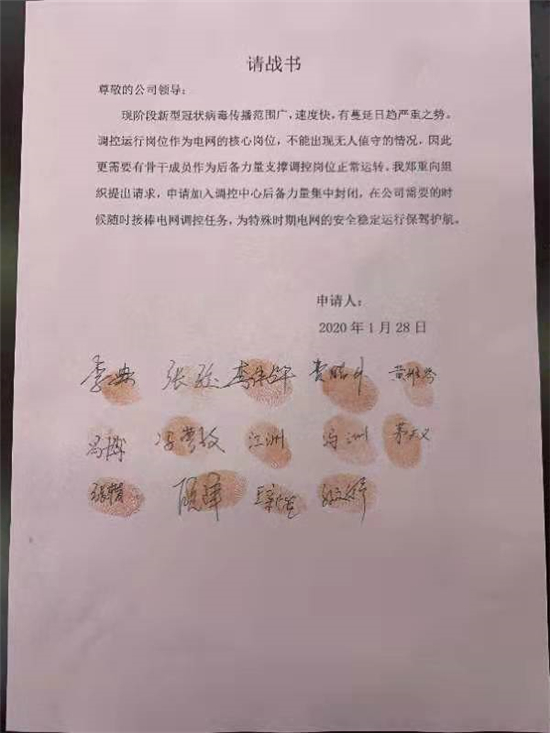 请战书
尊敬的公司领导：
现阶段新型冠状病毒传播范围广，速度快，有蔓延日趋严重之势。
调控运行岗位作为电网的核心岗位，不能出现无人值守的情况，因此
更需要有骨干成员作为后备力量支撑调控岗位正常运转。我郑重向组
织提出请求，申请加入调控中心后备力量集中封闭，在公司需要的时
候随时接棒电网调控任务，为特殊时期电网的安全稳定运行保驾护航。
申请人：
2020 年 1 月 28 日
江洲 冯洲